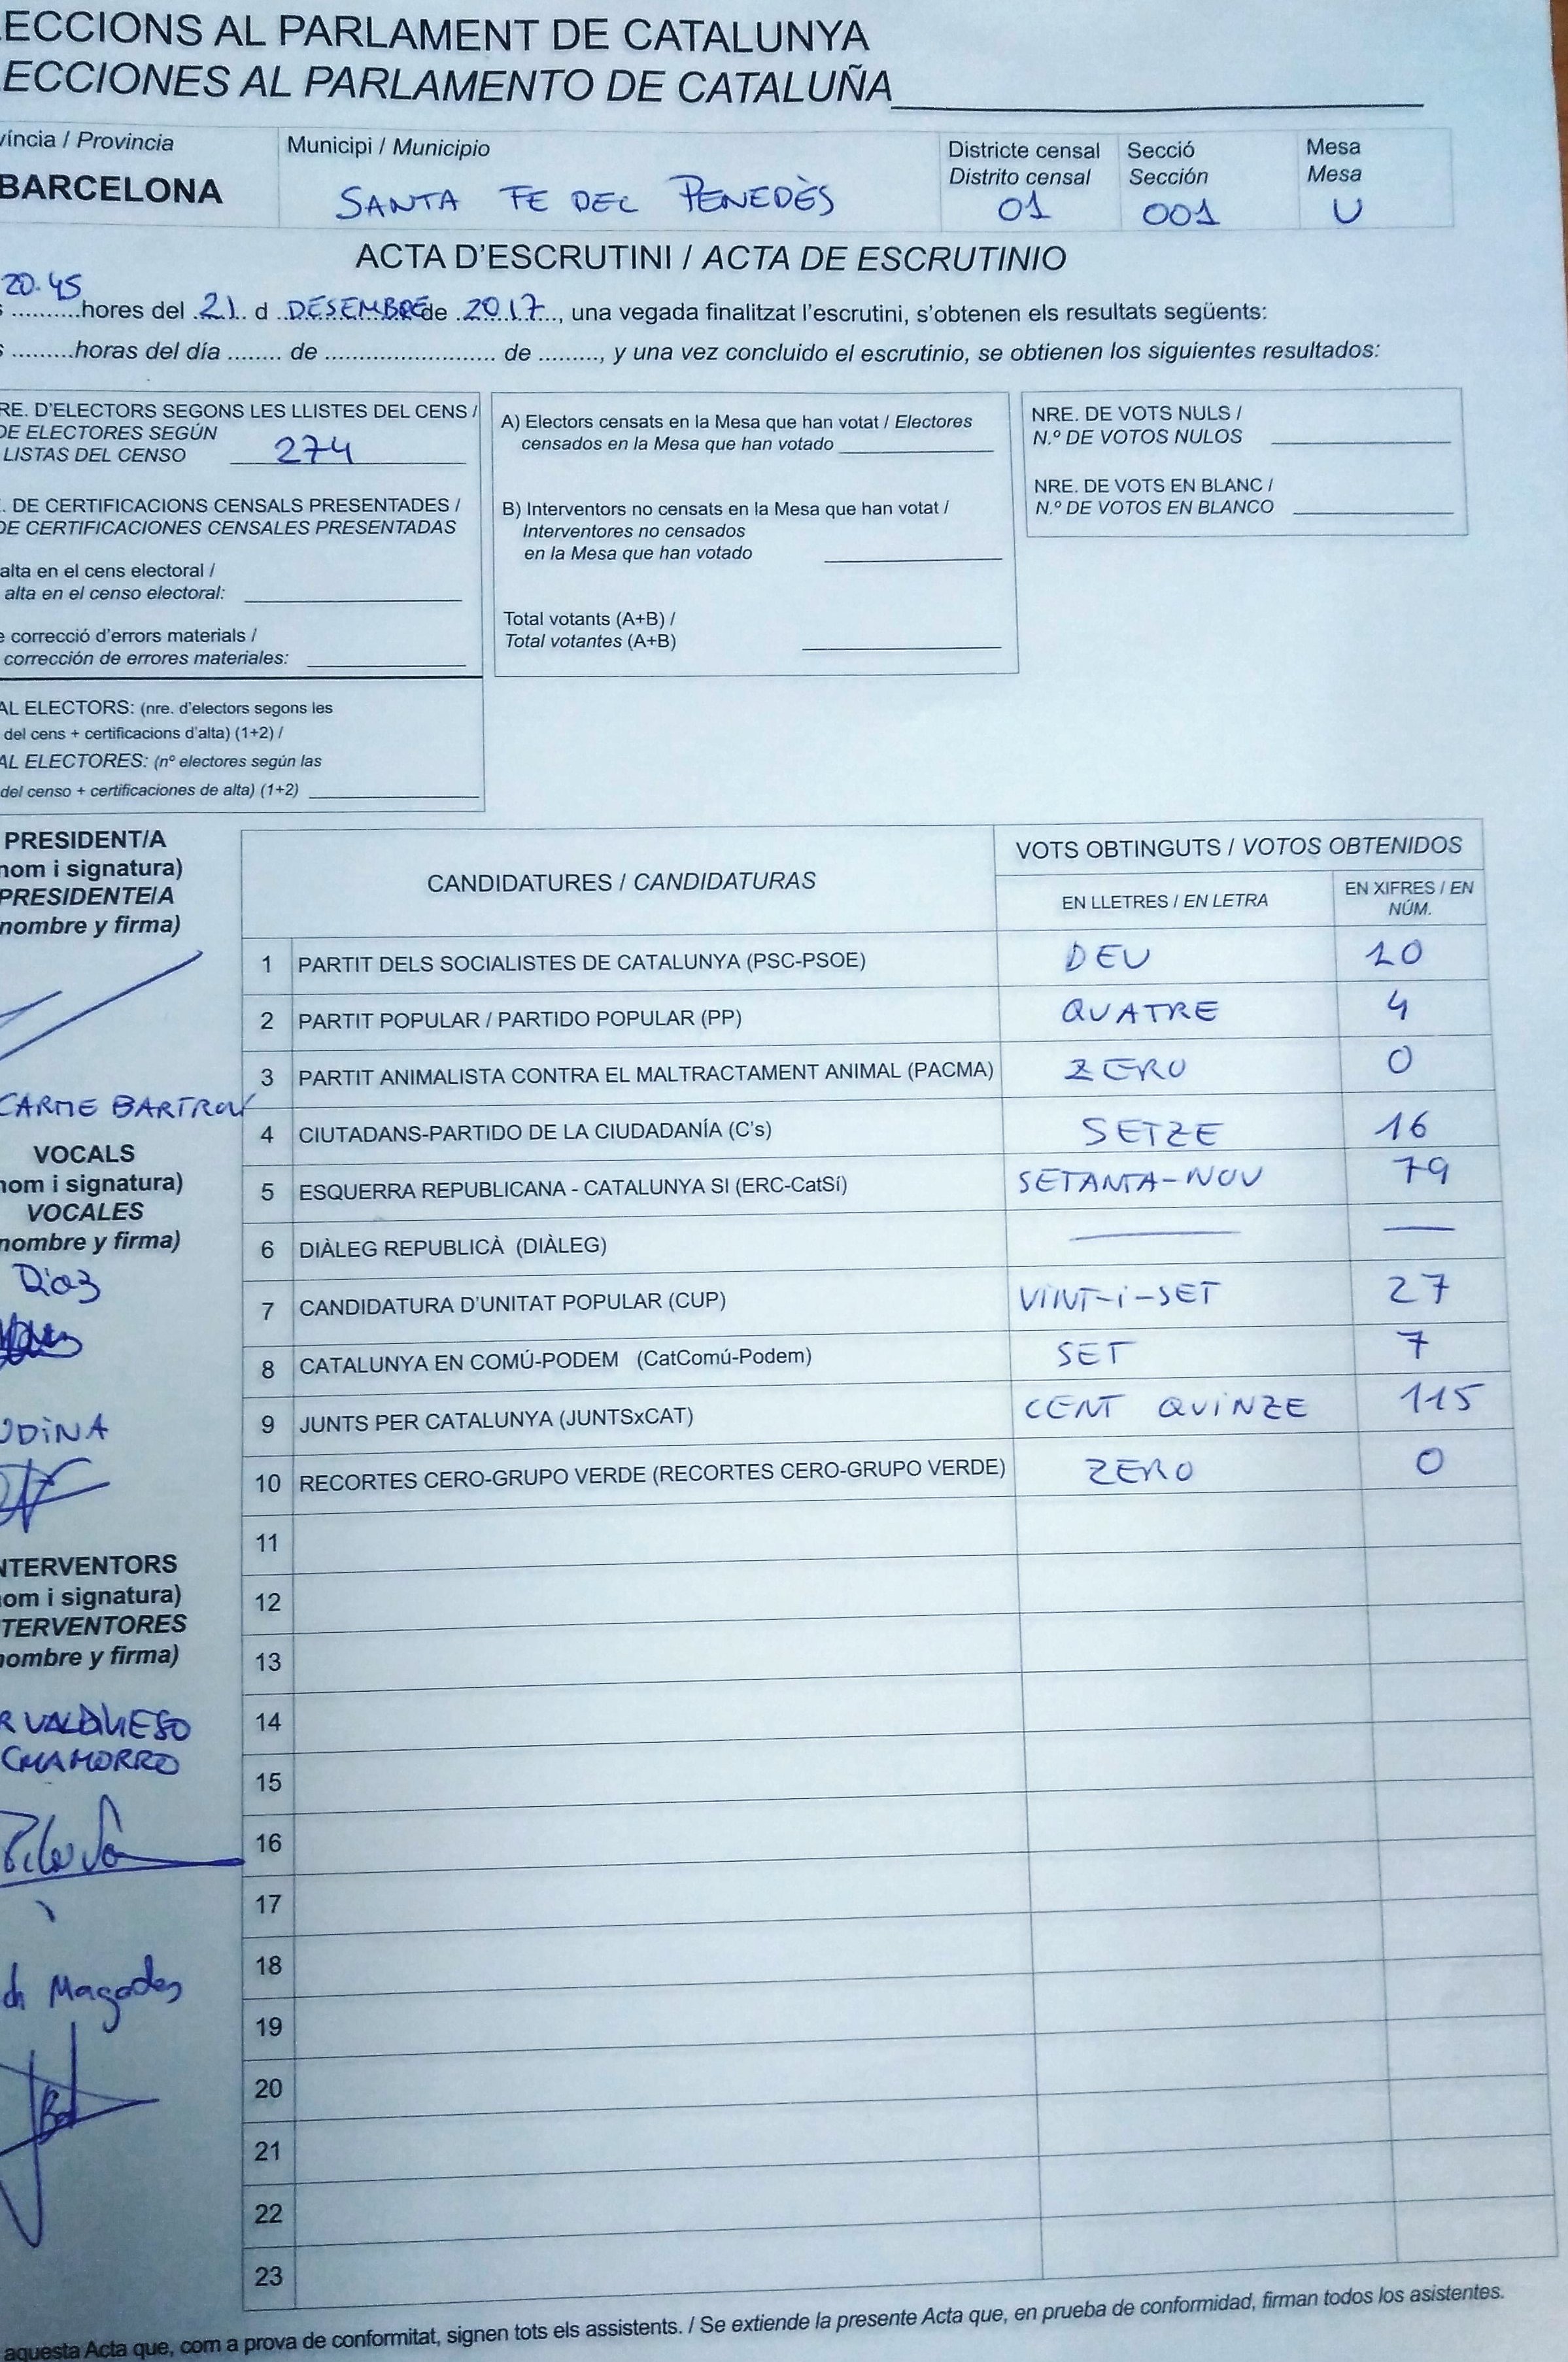 ECCIONS AL PARLAMENT DE CATALUNYA
ECCIONES AL PARLAMENTO DE CATALUÑA
víncia / Provincia
BARCELONA
Municipi / Municipio
SANTA FE DEL PENEDÈS
Districte censal
Distrito censal
01
Secció
Sección
001
Mesa
Mesa
U
ACTA D'ESCRUTINI / ACTA DE ESCRUTINIO
20.45 hores del 21 d DESEMBRE de 2017, una vegada finalitzat l'escrutini, s'obtenen els resultats següents:
horas del día ........ de ......................... de ........., y una vez concluido el escrutinio, se obtienen los siguientes resultados:
RE. D'ELECTORS SEGONS LES LLISTES DEL CENS /
DE ELECTORES SEGÚN
LISTAS DEL CENSO 274
. DE CERTIFICACIONS CENSALS PRESENTADES /
DE CERTIFICACIONES CENSALES PRESENTADAS
alta en el cens electoral /
alta en el censo electoral:
e correcció d'errors materials /
corrección de errores materiales:
AL ELECTORS: (nre. d'electors segons les
del cens + certificacions d'alta) (1+2) /
AL ELECTORES: (nº electores según las
del censo + certificaciones de alta) (1+2)
A) Electors censats en la Mesa que han votat / Electores
censados en la Mesa que han votado
B) Interventors no censats en la Mesa que han votat /
Interventores no censados
en la Mesa que han votado
Total votants (A+B) /
Total votantes (A+B)
NRE. DE VOTS NULS /
N.º DE VOTOS NULOS
NRE. DE VOTS EN BLANC /
N.º DE VOTOS EN BLANCO
PRESIDENT/A
nom i signatura)
PRESIDENTE/A
nombre y firma)
CARME BARTROV
VOCALS
nom i signatura)
VOCALES
nombre y firma)
Diaz
UDINA
NTERVENTORS
om i signatura)
TERVENTORES
nombre y firma)
R VALDIVIESO
CHAMORRO
CANDIDATURES / CANDIDATURAS
VOTS OBTINGUTS / VOTOS OBTENIDOS
EN LLETRES / EN LETRA
EN XIFRES / EN
NÚM.
1 PARTIT DELS SOCIALISTES DE CATALUNYA (PSC-PSOE) DEU 10
2 PARTIT POPULAR / PARTIDO POPULAR (PP) QUATRE 4
3 PARTIT ANIMALISTA CONTRA EL MALTRACTAMENT ANIMAL (PACMA) ZERO 0
4 CIUTADANS-PARTIDO DE LA CIUDADANÍA (C's) SETZE 16
5 ESQUERRA REPUBLICANA - CATALUNYA SI (ERC-CatSí) SETANTA-NOU 79
6 DIÀLEG REPUBLICÀ (DIÀLEG) — —
7 CANDIDATURA D'UNITAT POPULAR (CUP) VINT-i-SET 27
8 CATALUNYA EN COMÚ-PODEM (CatComú-Podem) SET 7
9 JUNTS PER CATALUNYA (JUNTSxCAT) CENT QUINZE 115
10 RECORTES CERO-GRUPO VERDE (RECORTES CERO-GRUPO VERDE) ZERO 0
11
12
13
14
15
16
17
18
19
20
21
22
23
aquesta Acta que, com a prova de conformitat, signen tots els assistents. / Se extiende la presente Acta que, en prueba de conformidad, firman todos los asistentes.